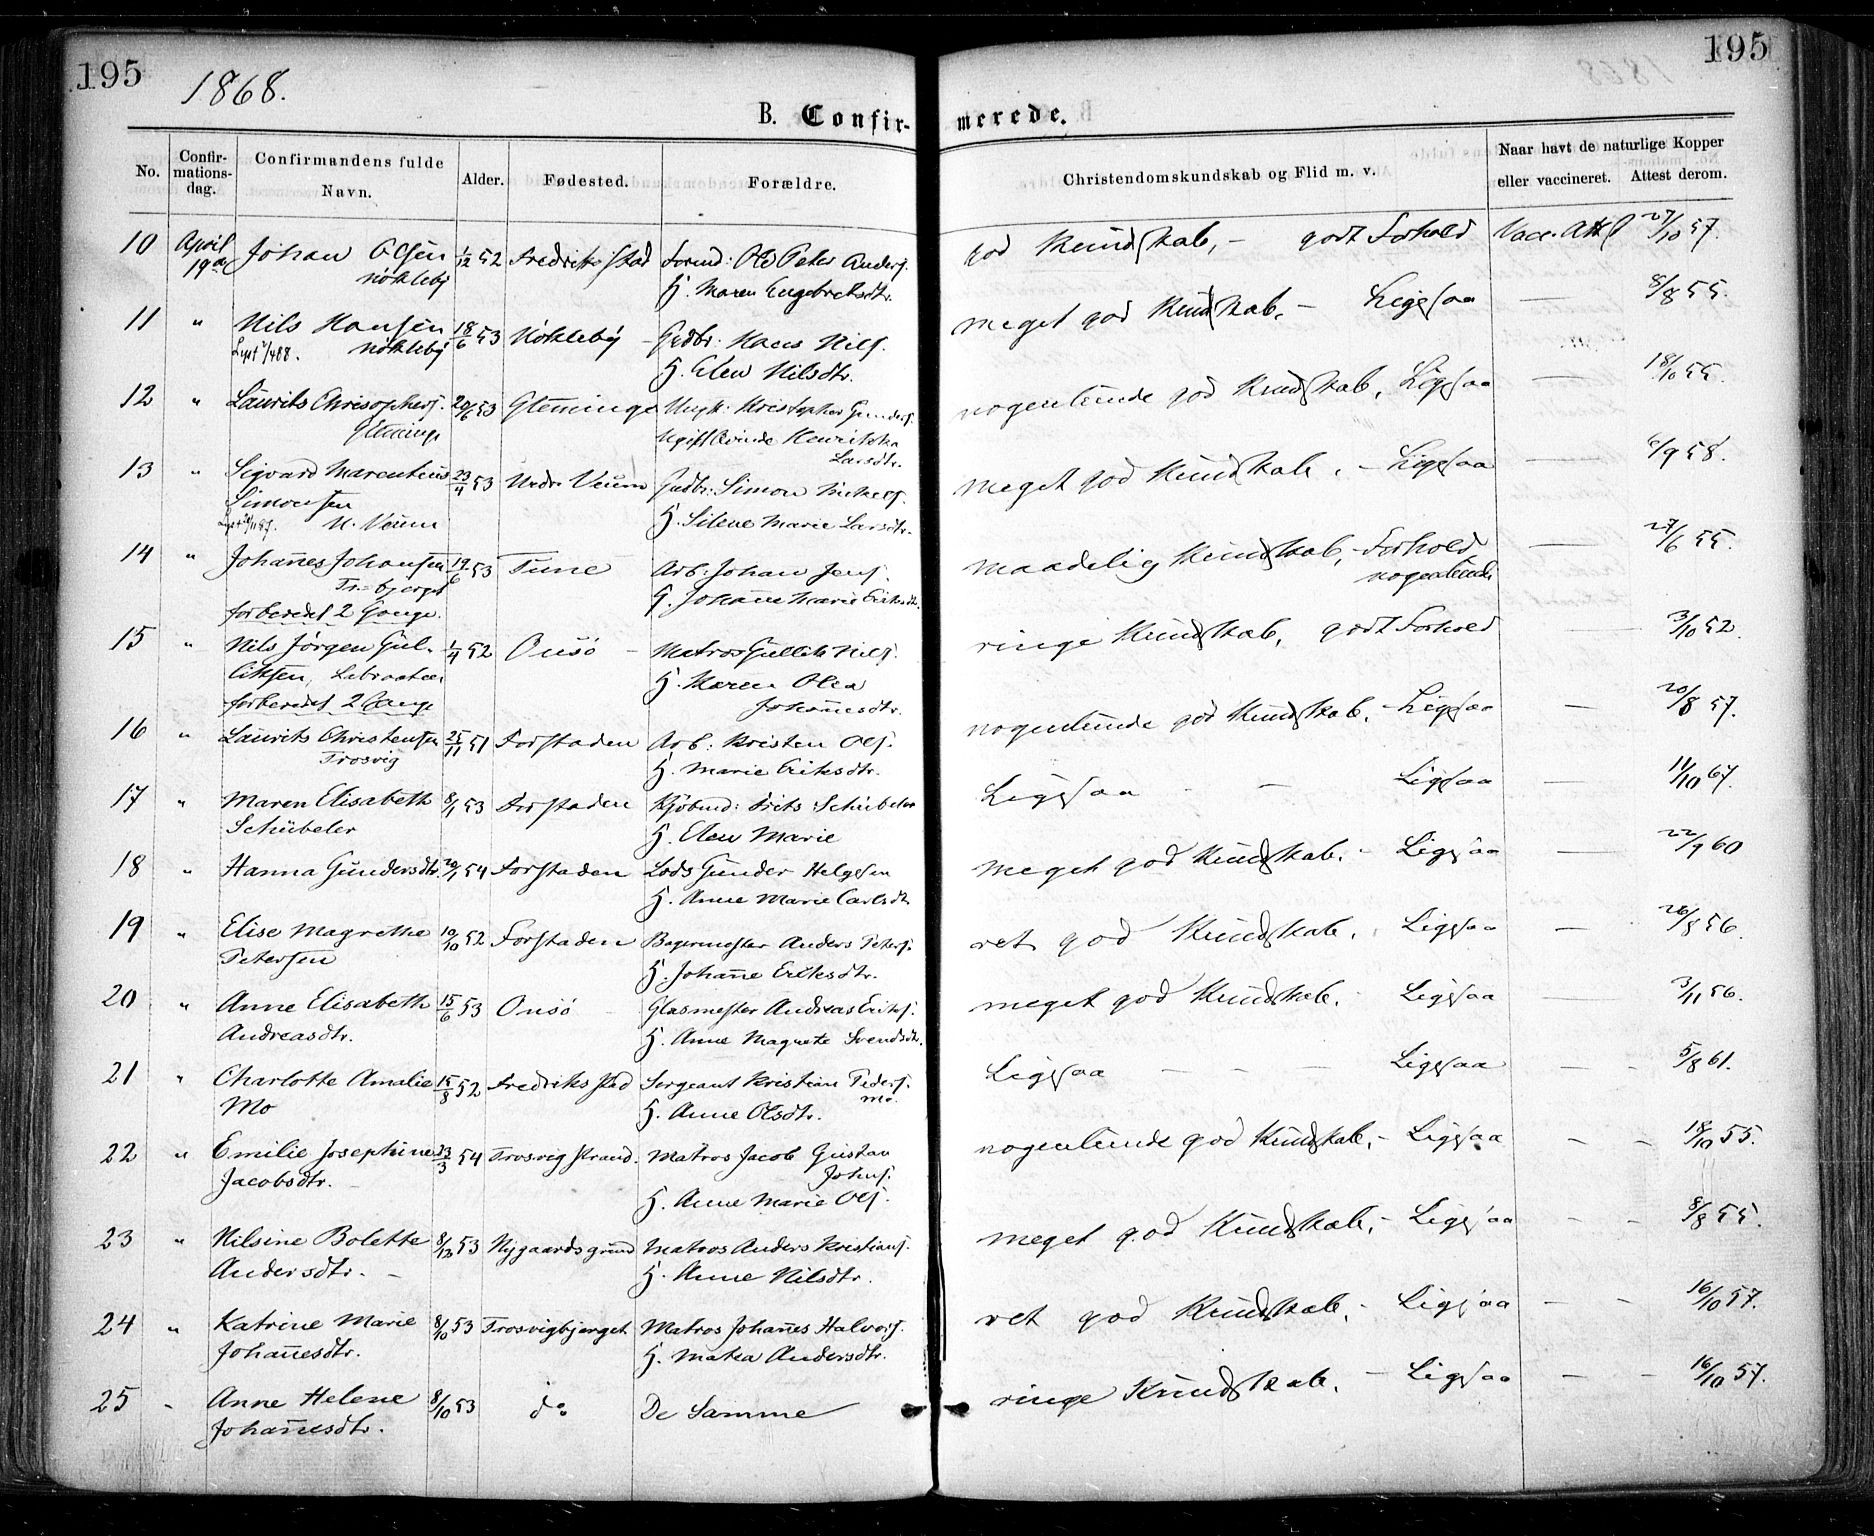 195
1868.
B. Confir-
merede.
195
No.
Confir-
mations-
dag.
Confirmandens fulde
Navn.
Alder.
Fødested.
Forældre.
Christendomskundskab og Flid m. v.
Naar havt de naturlige Kopper
eller vaccineret. Attest derom.
10 April Johan Olsen 1/12 52 Fredrikstad Ole Peter Anders. god Kundskab, - godt Forhold Vacc. Att. 27/10 57.
19de Nökleby H. Maren Engebretsdtr.
11 " Nils Hansen 18/6 53 Nökleby - Grdbr: Hans Nils. meget god Kundskab. - Ligesaa — 8/8 55.
Nökleby H. Elen Nilsdtr.
12 " Laurits Chrisophers. 20/6 53 Glemminge Ungk: Kristopher Gunders. nogenlunde god Kundskab, Ligesaa — 18/10 55.
Glemminge Ugift Qvinde Henrikka
Larsdtr.
13 " Sigvard Marentius 23/4 53 Nedr. Veum Grdbr: Simon Mikels. meget god Kundskab. - Ligesaa — 8/9 58.
Simonsen H. Silene Marie Larsdtr.
N. Veum
14 " Johannes Johansen 19/6 53 Tune Arb: Johan Jens. maadelig Kundskab, - Forhold — 27/6 55.
H. Johanne Marie Eriksdtr. nogenlunde
forberedet 2 Gange.
15 " Nils Jörgen Gul- 1/4 52 Onsö - Matros Gullik Nils. ringe Kundskab, godt Forhold — 3/10 52.
liksen, H. Maren Olea
forberedet 2 Gange Johannesdtr.
16 " Laurits Christensen 25/11 51 Forstaden Arb: Kristen Ols. nogenlunde god Kundskab. - Ligesaa — 20/8 57.
Trosvig H. Marie Eriksdtr.
17 " Maren Elisabeth 8/1 53 Forstaden Kjöbmd: Frits Schübeler Ligesaa - - Ligesaa — 11/10 67.
Schübeler H. Elen Marie
18 " Hanna Gundersdtr. 20/1 54 Forstaden Lods Gunder Helgesen meget god Kundskab. - Ligesaa — 22/9 60
H. Anne Marie Carlsdtr
19 " Elise Magrethe 10/10 52 Forstaden Bagermester Anders Peters. ret god Kundskab. Ligesaa — 26/8 56.
Petersen H. Johanne Eriksdtr.
20 " Anne Elisabeth 15/6 53 Onsö Glasmester Andreas Eriks. meget god Kundskab. Ligesaa — 3/11 56.
Andreasdtr. H. Anne Magrete Svendsdtr.
21 " Charlotte Amalie 15/8 52 Fredrikstad Sergeant Kristian Peders. Ligesaa - - - Ligesaa - - 5/8 61.
Mo Mo.
H. Anne Olsdtr.
22 " Emilie Josephine 23/3 54 Trosvigstrand. Matros Jacob Gustav nogenlunde god Kundskab, - Ligesaa - - 18/10 55.
Jacobsdtr. Johns.
H. Anne Marie Ols.
23 " Nilsine Bolette 8/12 53 Nygaardsgrund Matros Anders Kristians. meget god Kundskab, - Ligesaa - - 8/8 55.
Andersdtr. - H. Anne Nilsdtr.
24 " Katrine Marie 8/10 53 Trosvigbjerget Matros Johannes Halvors. ret god Kundskab. - Ligesaa - - 16/10 57.
Johannesdtr. H. Matea Andersdtr.
25 " Anne Helene 8/10 53 do De Samme ringe Kundskab. - Ligesaa - - 16/10 57.
Johannesdtr.